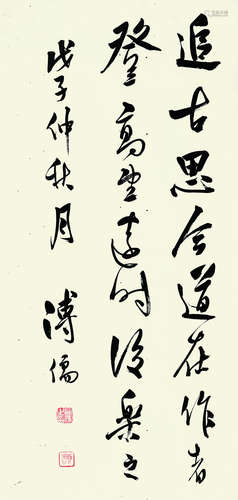 追古思今道在作者
登高望遠時復樂之
戊子仲秋月 溥儒